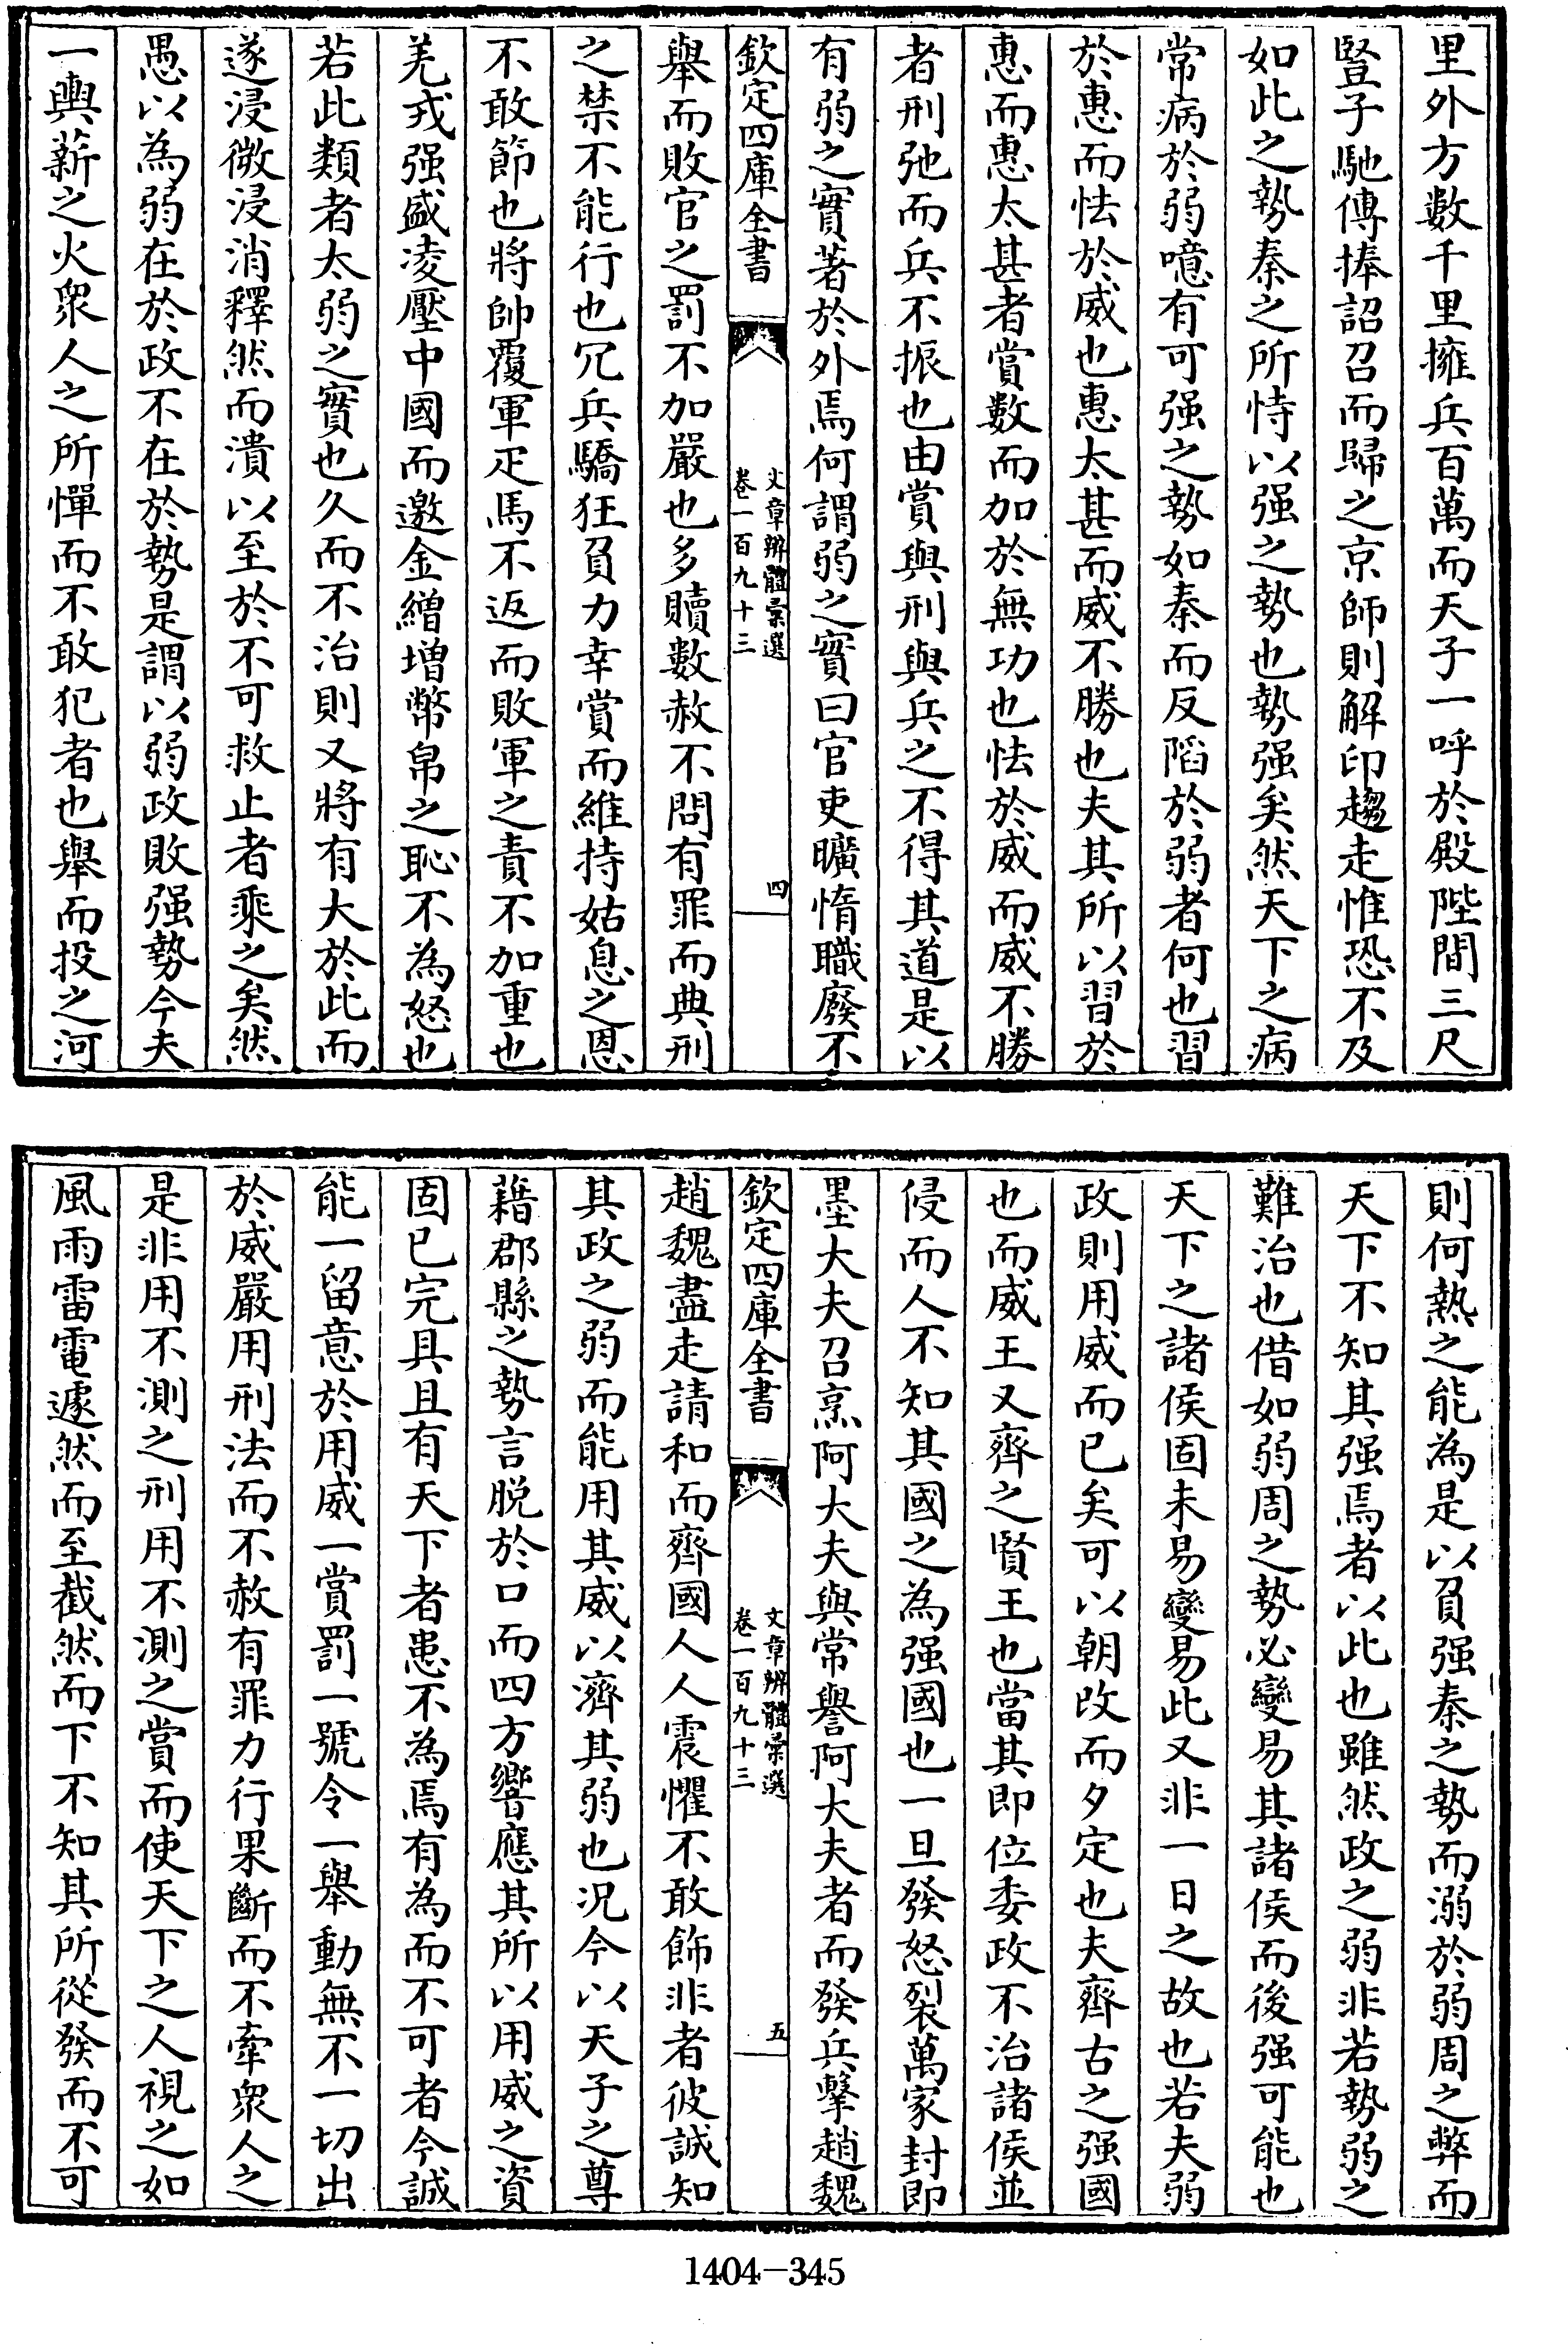 里外方數千里擁兵百萬而天子一呼於殿陛間三尺
豎子馳傳捧詔召而歸之京師則解印趨走惟恐不及
如此之勢秦之所恃以强之勢也勢强矣然天下之病
常病於弱噫有可强之勢如秦而反䧟於弱者何也習
於惠而怯於威也惠太甚而威不勝也夫其所以習於
惠而惠太甚者賞數而加於無功也怯於威而威不勝
者刑弛而兵不振也由賞與刑與兵之不得其道是以
有弱之實著於外焉何謂弱之實曰官吏曠惰職廢不
欽定四庫全書
文章辨體彚選
卷一百九十三
四
舉而敗官之罰不加嚴也多贖數赦不問有罪而典刑
之禁不能行也冗兵驕狂負力幸賞而維持姑息之恩
不敢節也將帥覆軍疋馬不返而敗軍之責不加重也
羌戎强盛凌壓中國而邀金繒增幣帛之恥不為怒也
若此類者太弱之實也久而不治則又將有大於此而
遂浸微浸消釋然而潰以至於不可救止者乘之矣然
愚以為弱在於政不在於勢是謂以弱政敗强勢今夫
一輿薪之火衆人之所憚而不敢犯者也舉而投之河
則何熱之能為是以負强秦之勢而溺於弱周之弊而
天下不知其强焉者以此也雖然政之弱非若勢弱之
難治也借如弱周之勢必變易其諸侯而後强可能也
天下之諸侯固未易變易此又非一日之故也若夫弱
政則用威而已矣可以朝改而夕定也夫齊古之强國
也而威王又齊之賢王也當其即位委政不治諸侯並
侵而人不知其國之為强國也一旦發怒裂萬家封即
墨大夫召烹阿大夫與常譽阿大夫者而發兵擊趙魏
欽定四庫全書
文章辨體彚選
卷一百九十三
五
趙魏盡走請和而齊國人人震懼不敢飾非者彼誠知
其政之弱而能用其威以濟其弱也况今以天子之尊
藉郡縣之勢言脱於口而四方響應其所以用威之資
固已完具且有天下者患不為焉有為而不可者今誠
能一留意於用威一賞罰一號令一舉動無不一切出
於威嚴用刑法而不赦有罪力行果斷而不牽衆人之
是非用不測之刑用不測之賞而使天下之人視之如
風雨雷電遽然而至截然而下不知其所從發而不可
1404-345